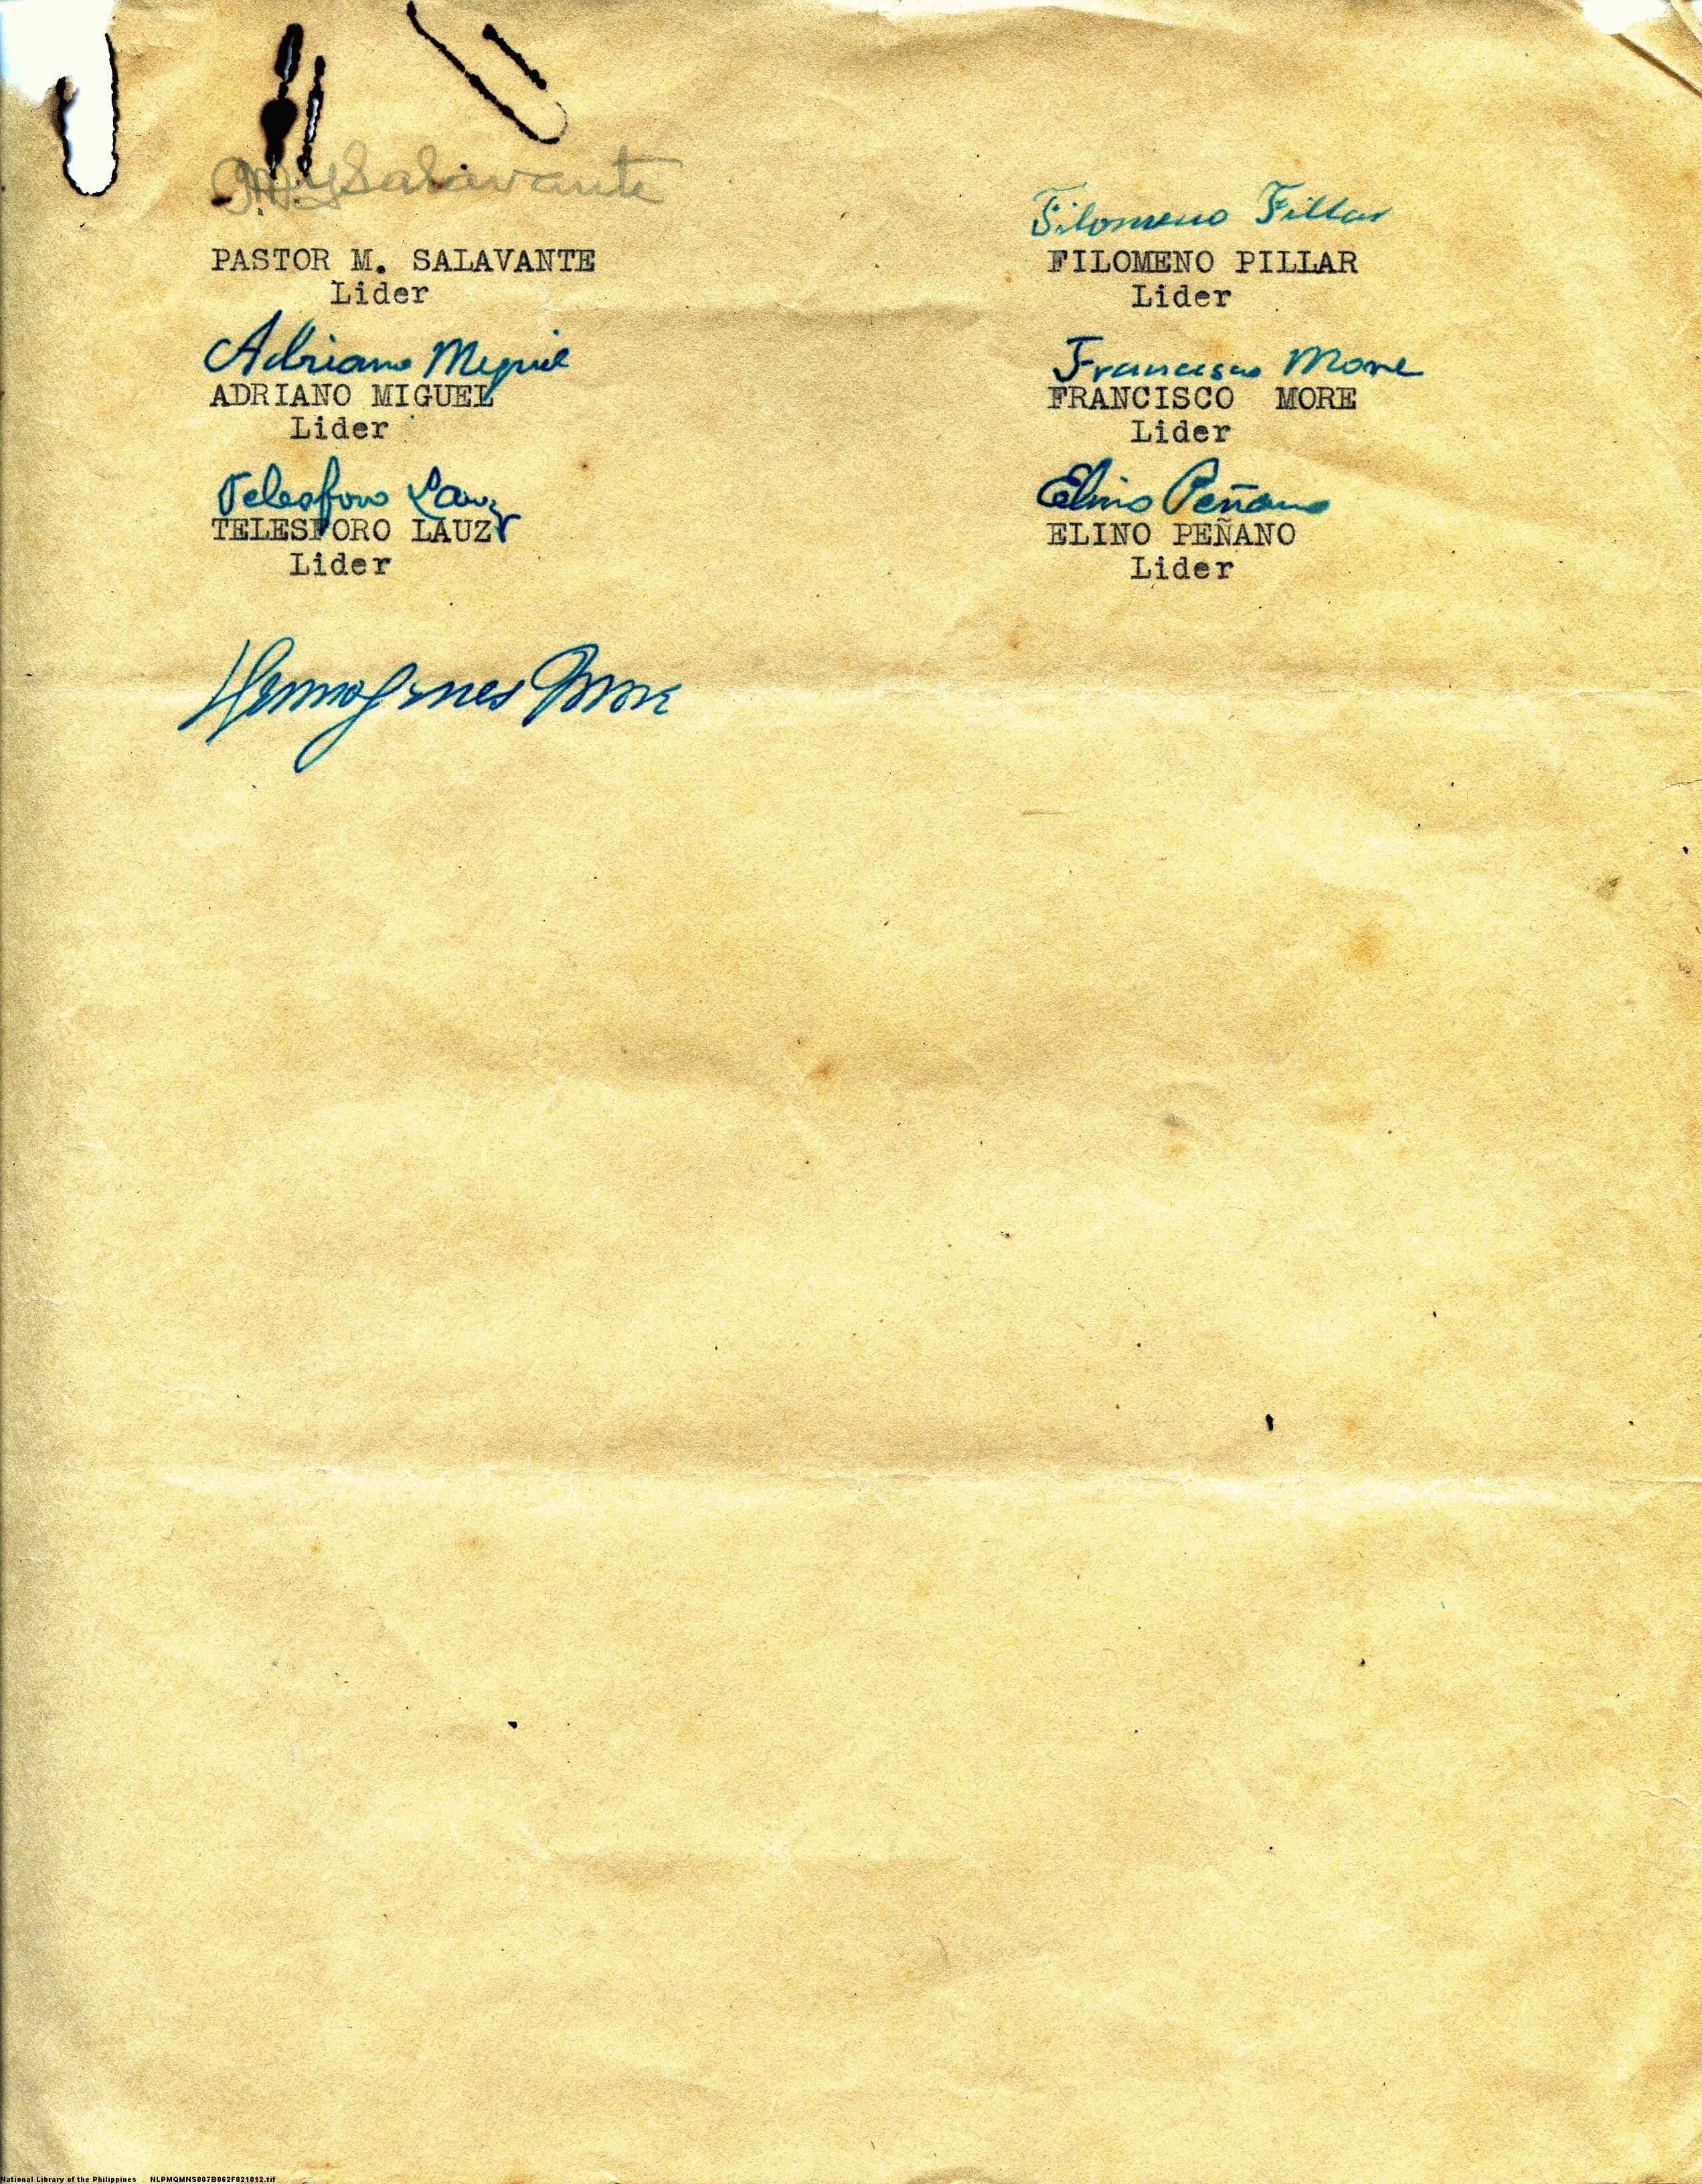 Salavante
PASTOR M. SALAVANTE
Lider
Filomeno Fillar
FILOMENO PILLAR
Lider
Adriano Miguel
ADRIANO MIGUEL
Lider
Francisco More
FRANCISCO MORE
Lider
Telesforo Lauz
TELESFORO LAUZ
Lider
Elino Peñano
ELINO PEÑANO
Lider
Hermogenes More
National Library of the Philippines NLPMQMNS007B062F021012.tif